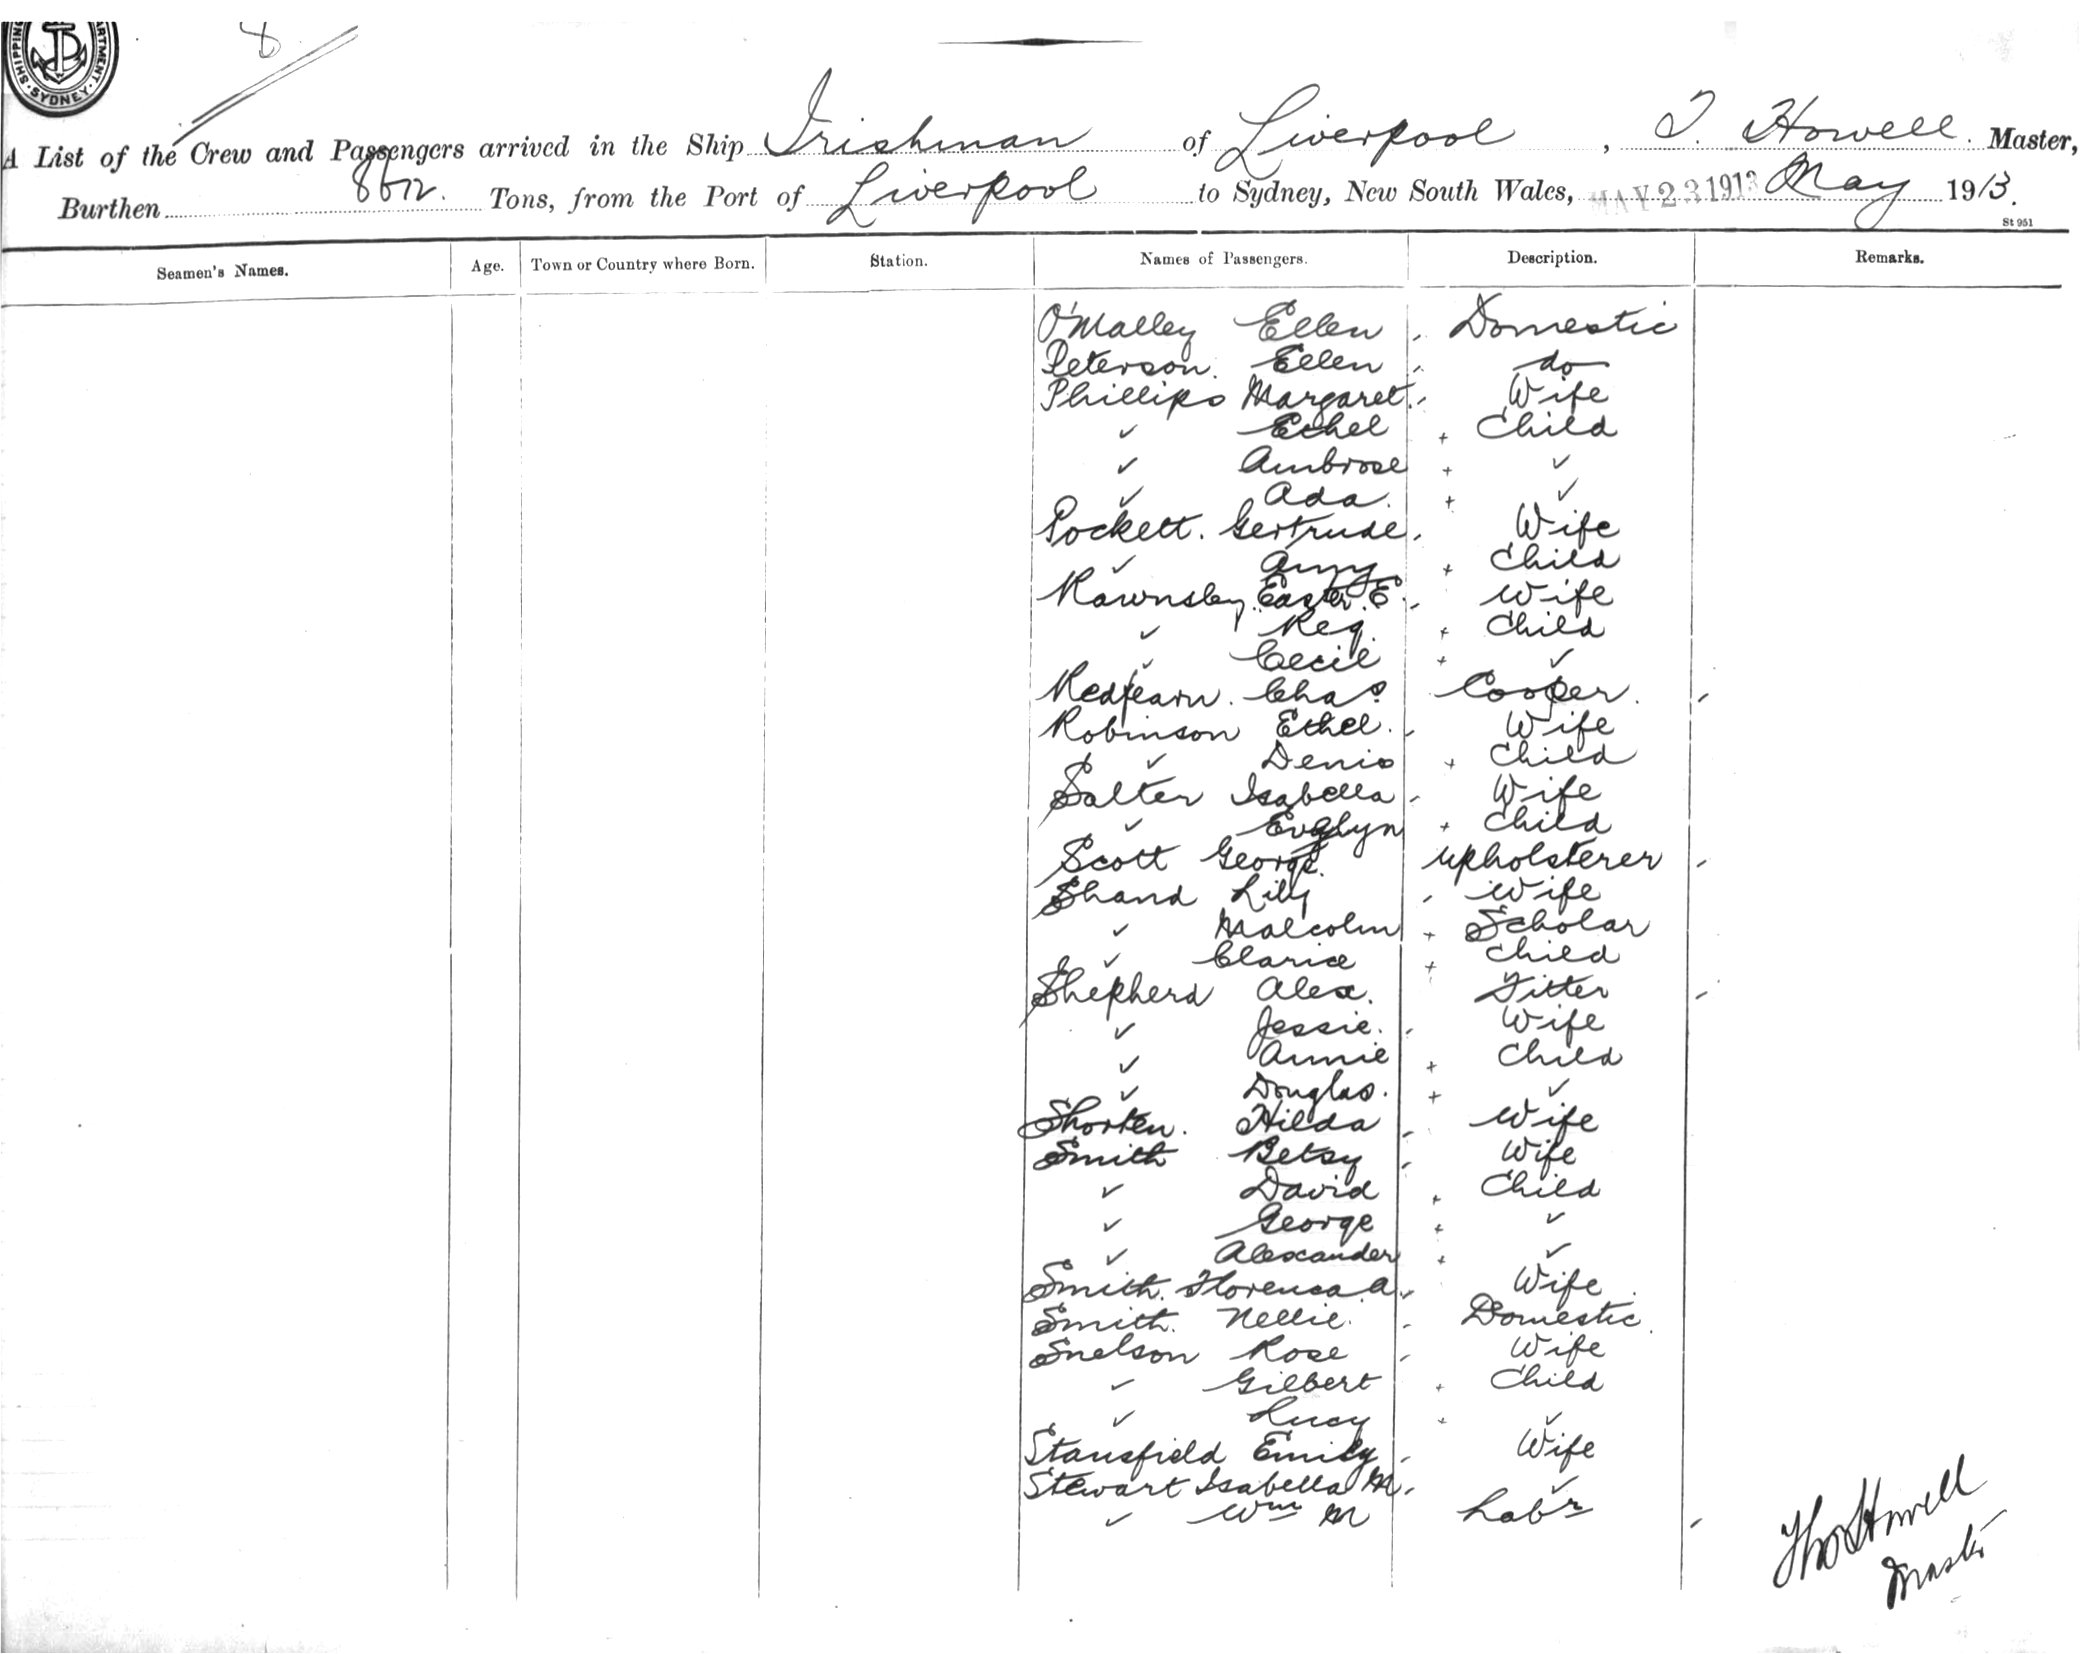 SHIPPING DEPARTMENT. SYDNEY.
8
A List of the Crew and Passengers arrived in the Ship Irishman of Liverpool, T. Howell. Master,
Burthen 8612. Tons, from the Port of Liverpool to Sydney, New South Wales, MAY 23 1913 May 1913.
St 951
Seamen's Names. Age. Town or Country where Born. Station. Names of Passengers. Description. Remarks.
O'Malley Ellen Domestic
Peterson. Ellen do
Phillips Margaret. Wife
✓ Ethel + Child
✓ Ambrose + ✓
✓ Ada. + ✓
Pockett. Gertrude. Wife
✓ Amy + Child
Rawnsley. Easter. E. Wife
✓ Reg. + Child
✓ Cecil + ✓
Redfearn. Chas. Cooper.
Robinson Ethel. Wife
✓ Denis + Child
Salter Isabella Wife
✓ Evelyn + Child
Scott George. Upholsterer
Shand Lily Wife
✓ Malcolm + Scholar
✓ Clarice + Child
Shepherd Alex. Fitter
✓ Jessie. Wife
✓ Annie + Child
✓ Douglas. + ✓
Shorten. Hilda Wife
Smith Betsy Wife
✓ David + Child
✓ George + ✓
✓ Alexander + ✓
Smith. Florence. A. Wife
Smith. Nellie. Domestic.
Snelson Rose Wife
✓ Gilbert + Child
✓ Lucy + ✓
Stansfield Emily Wife
Stewart Isabella M. ✓
✓ Wm M Labr
Thos Howell
Master